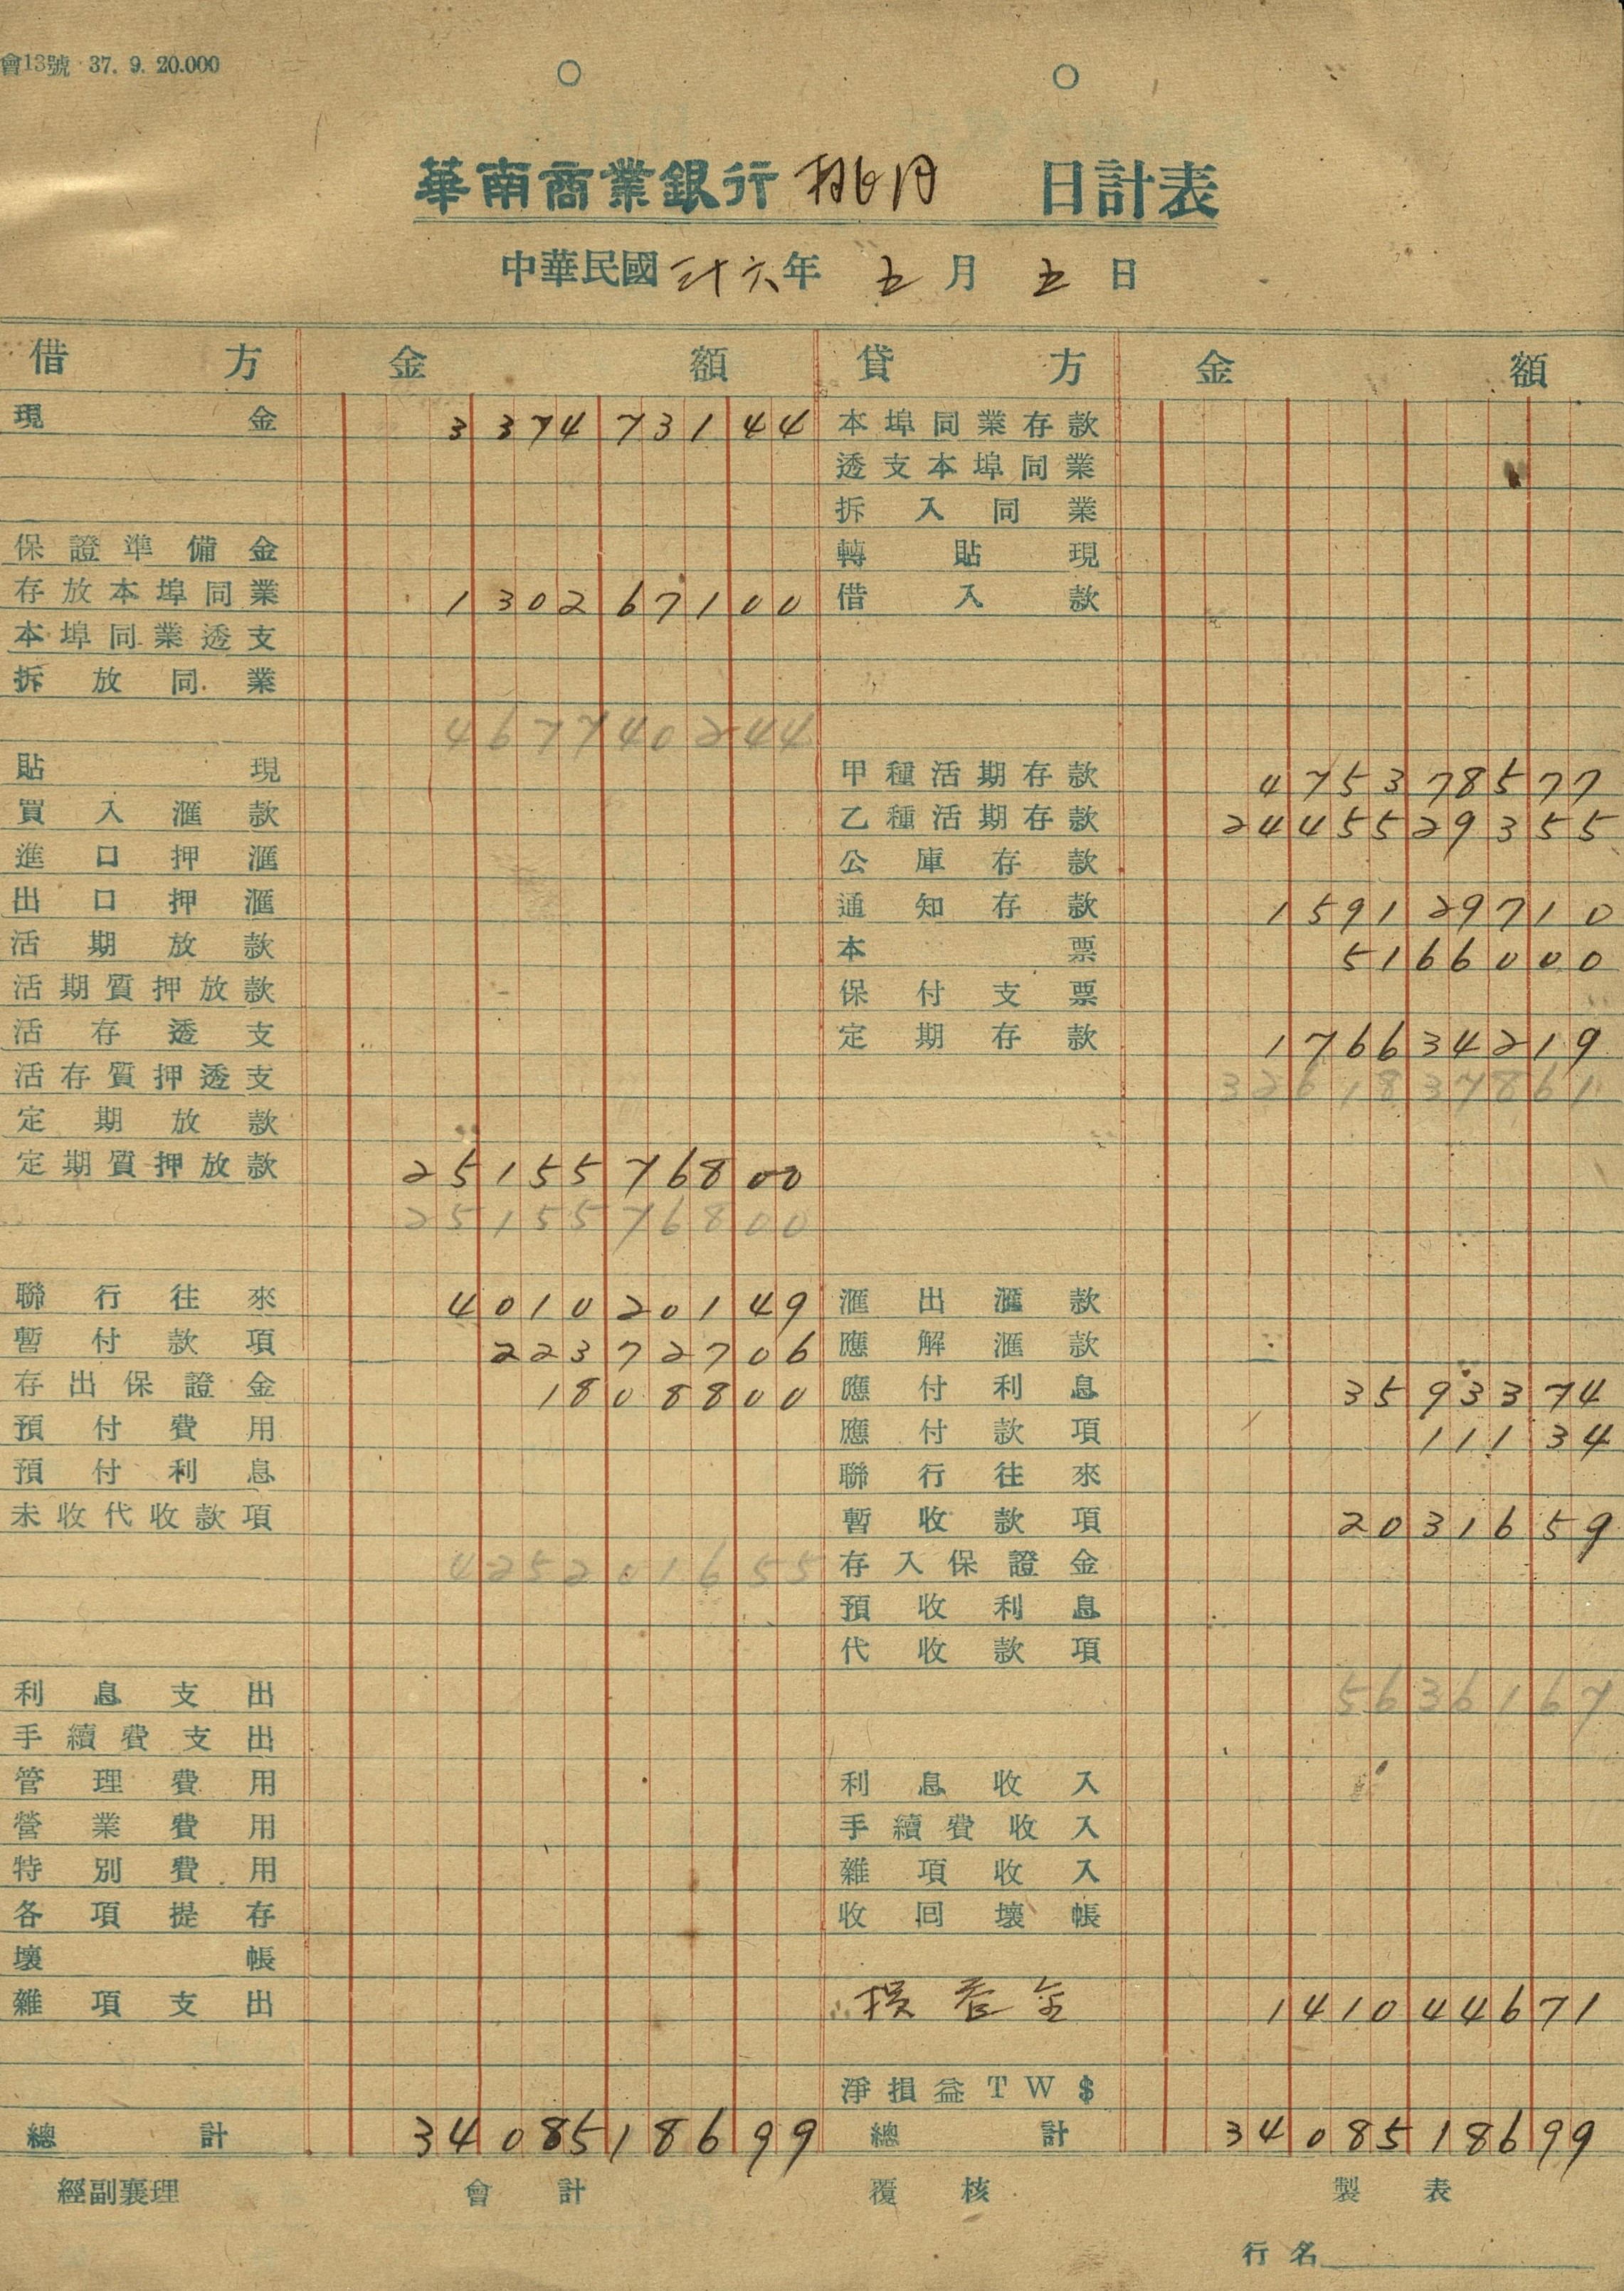 會13號 37. 9. 20.000
華南商業銀行 桃円 日計表
中華民國三十六年 五月 五日
借方 金額 貸方 金額
現金 3 374 731 44 本埠同業存款
透支本埠同業
拆入同業
保證準備金 轉貼現
存放本埠同業 1 302 671 00 借入款
本埠同業透支
拆放同業
4 677 402 44
貼現 甲種活期存款 4 753 785 77
買入滙款 乙種活期存款 24 455 293 55
進口押滙 公庫存款
出口押滙 通知存款 1 591 297 10
活期放款 本票 51 660 00
活期質押放款 保付支票
活存透支 定期存款 1 766 342 19
活存質押透支 32 618 378 61
定期放款
定期質押放款 25 155 768 00
25 155 768 00
聯行往來 4 010 201 49 滙出滙款
暫付款項 223 727 06 應解滙款
存出保證金 18 088 00 應付利息 35 933 74
預付費用 應付款項 111 34
預付利息 聯行往來
未收代收款項 暫收款項 20 316 59
4 252 016 55 存入保證金
預收利息
代收款項
利息支出 56 361 67
手續費支出
管理費用 利息收入
營業費用 手續費收入
特別費用 雜項收入
各項提存 收回壞帳
壞帳
雜項支出 損益金 1 410 446 71
淨損益TW$
總計 34 085 186 99 總計 34 085 186 99
經副襄理 會計 覆核 製表
行名